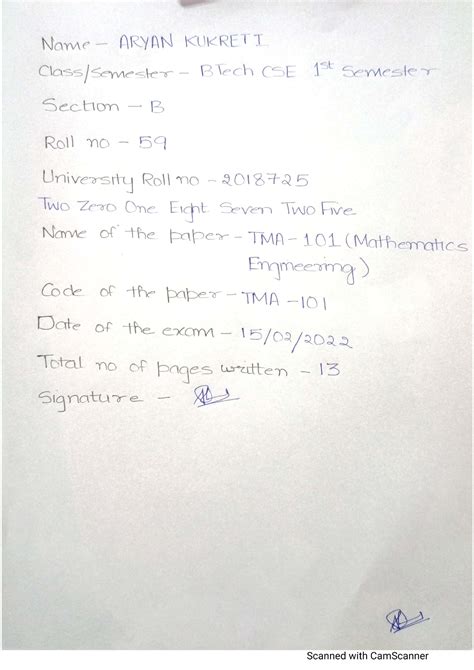 Name - ARYAN KUKRETI
Class/Semester - BTech CSE 1st Semester
Section - B
Roll no - 59
University Roll no - 2018725
Two Zero One Eight Seven Two Five
Name of the paper - TMA - 101 (Mathematics
Engineering)
Code of the paper - TMA -101
Date of the exam - 15/02/2022
Total no of pages written - 13
Signature -
Scanned with CamScanner